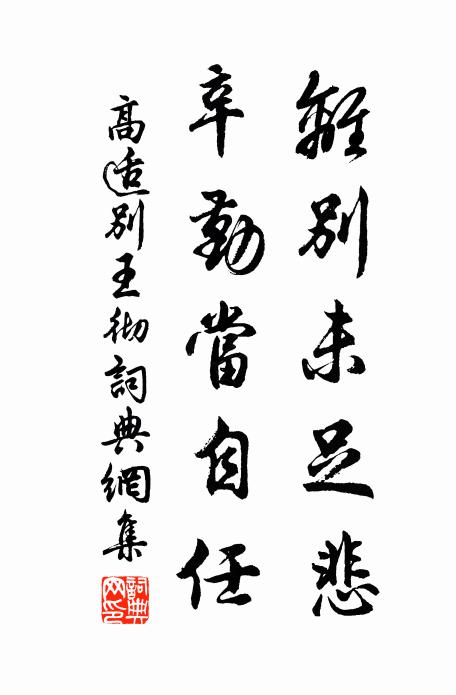 離別未足悲
辛勤當自任
高适別王彻詞典網集
詞典网印